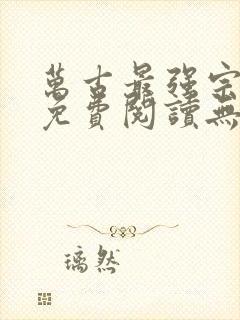 萬古最强宗
免費閱讀無
璃然